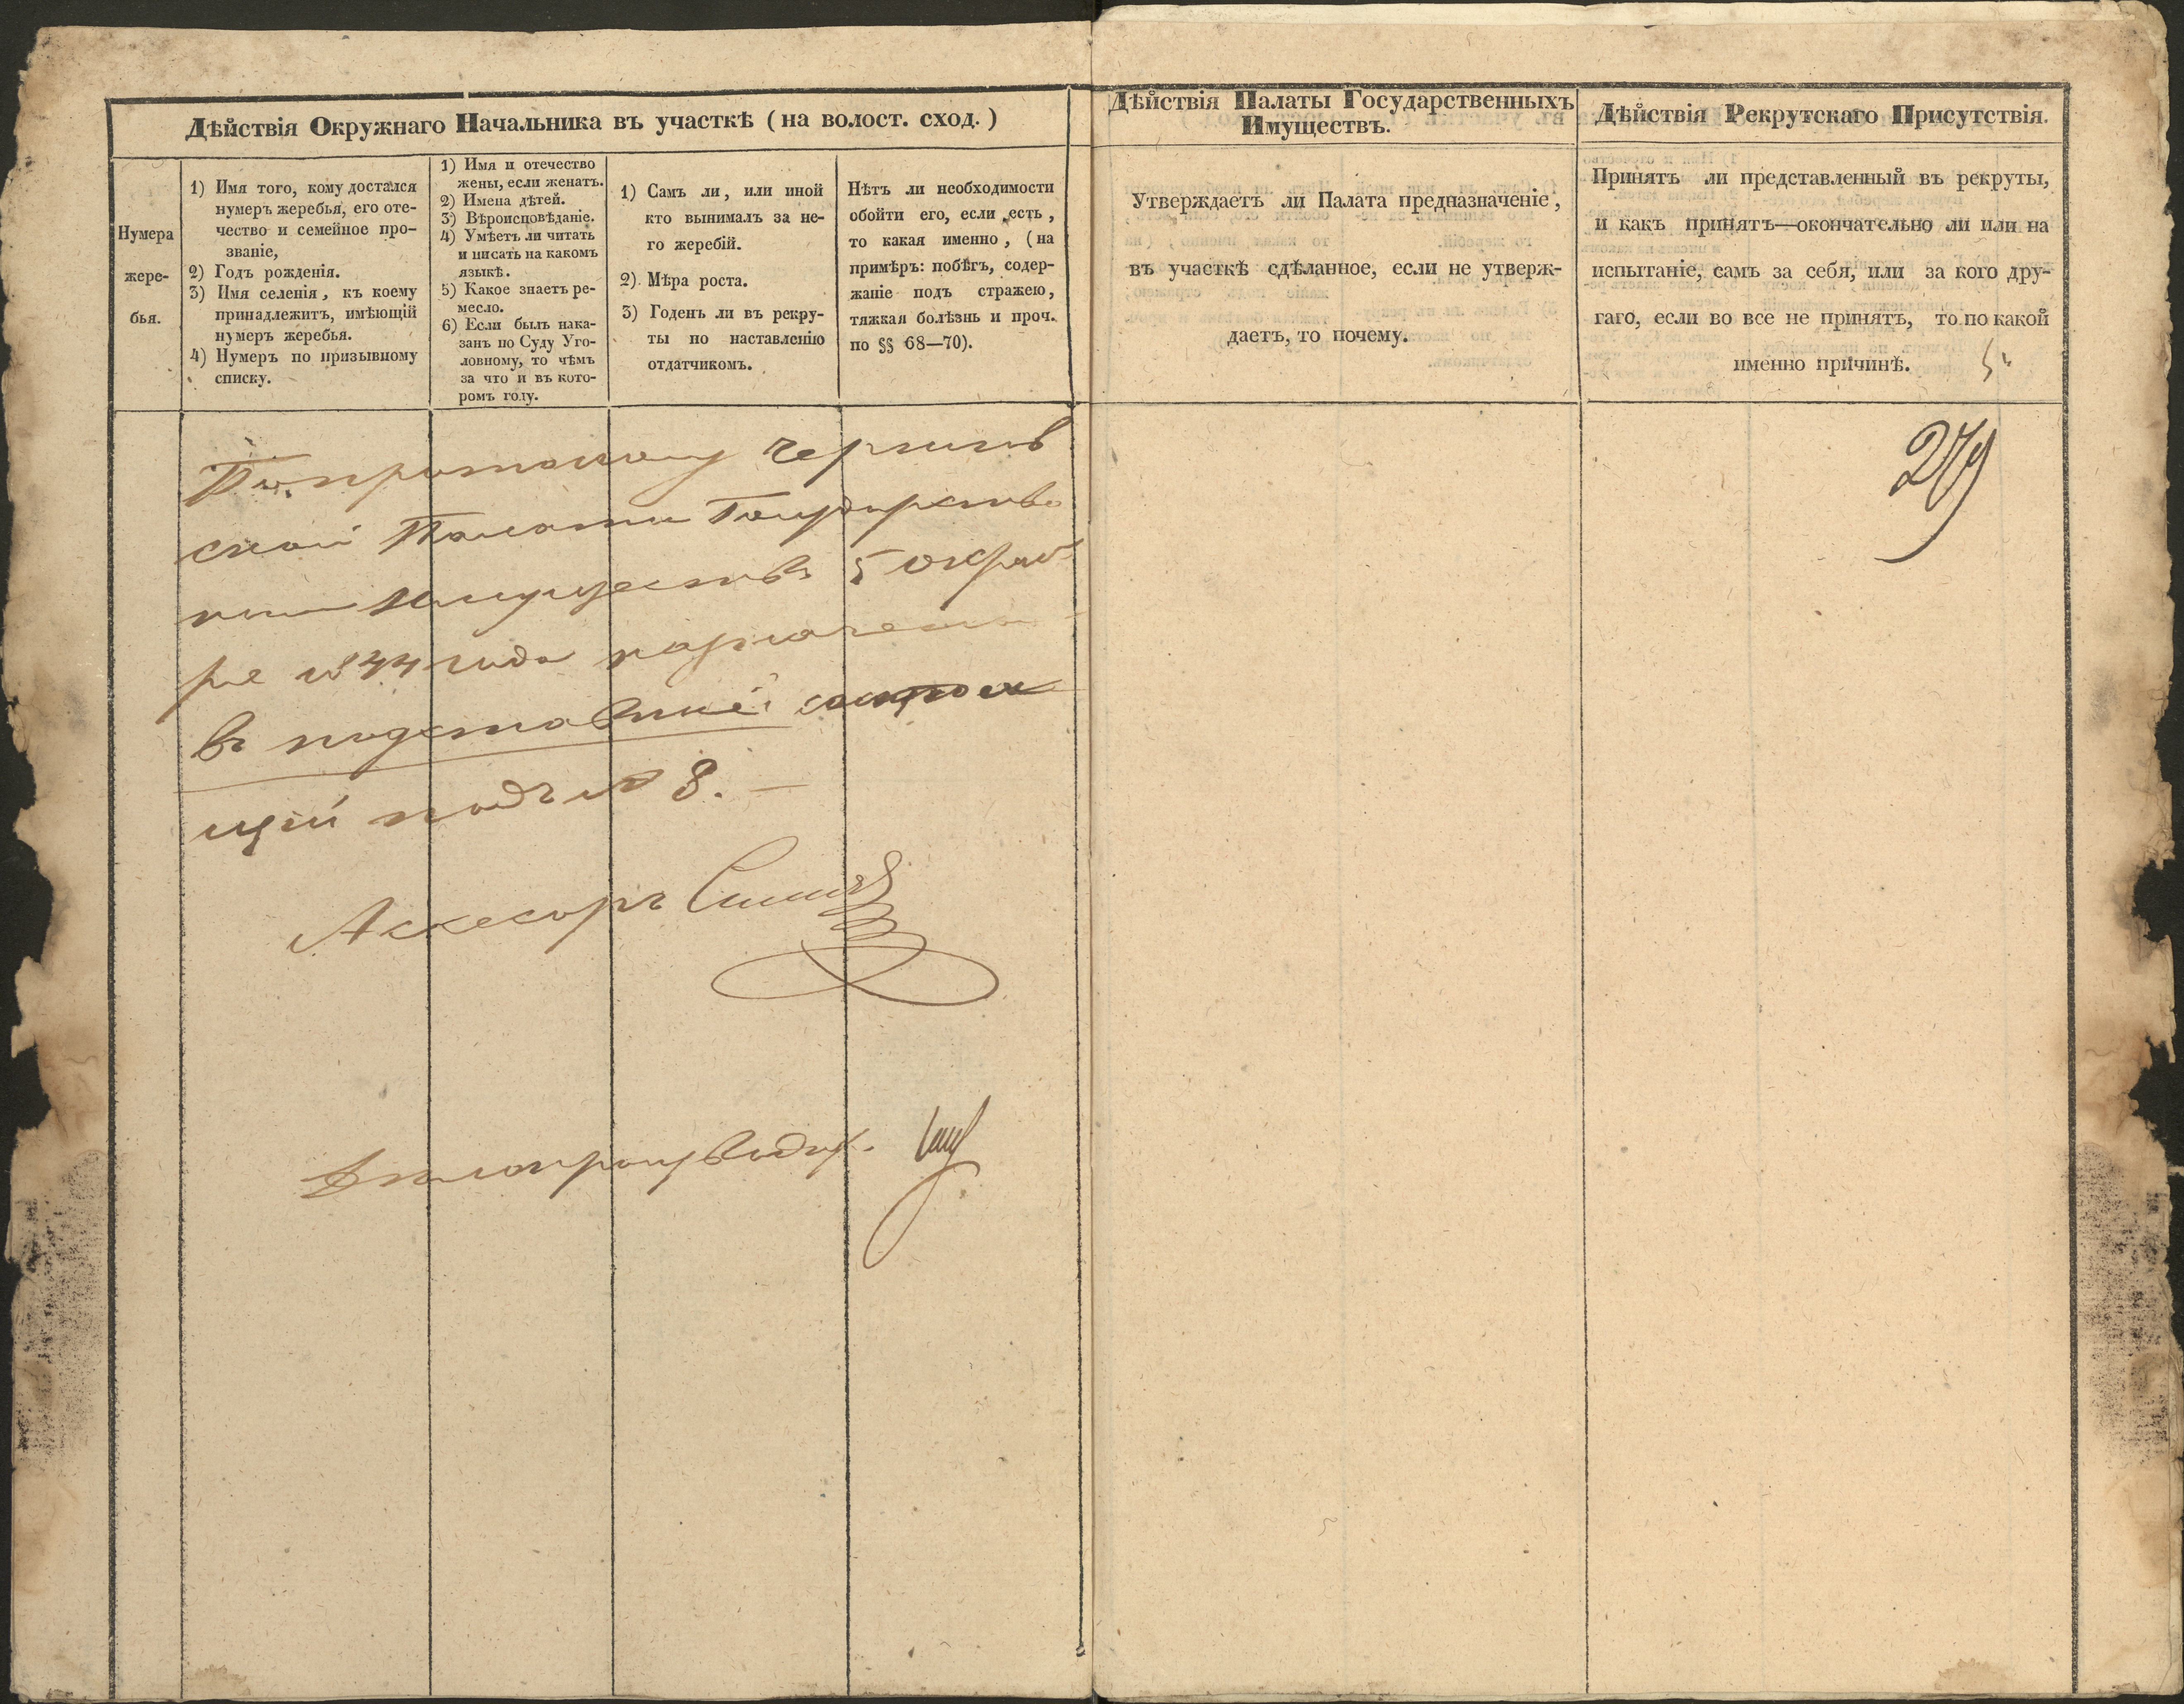 Дѣйствія Окружнаго Начальника въ участкѣ (на волост. сход.)
Нумера
жере-
бья.
1) Имя того, кому достался
нумеръ жеребья, его оте-
чество и семейное про-
званіе,
2) Годъ рожденія.
3) Имя селенія, къ коему
принадлежитъ, имѣющій
нумеръ жеребья.
4) Нумеръ по призывному
списку.
1) Имя и отечество
жены, если женатъ.
2) Имена дѣтей.
3) Вѣроисповѣданіе.
4) Умѣетъ ли читать
и писать на какомъ
языкѣ.
5) Какое знаетъ ре-
месло.
6) Если былъ нака-
занъ по Суду Уго-
ловному, то чѣмъ
за что и въ кото-
ромъ году.
1) Самъ ли, или иной
кто вынималъ за не-
го жеребій.
2) Мѣра роста.
3) Годенъ ли въ рекру-
ты по наставленію
отдатчикомъ.
Нѣтъ ли необходимости
обойти его, если есть,
то какая именно, (на
примѣръ: побѣгъ, содер-
жаніе подъ стражею,
тяжкая болѣзнь и проч.
по §§ 68—70).
По протоколу Чернигов
ской Палаты Государстве
ныхъ Имуществъ 5 октяб
ре 1844 года назначены
въ подставные состоя
щій подъ № 8. —
Ассесоръ
Дѣлопроизводит.
Дѣйствія Палаты Государственныхъ
Имуществъ.
Утверждаетъ ли Палата предназначеніе,
въ участкѣ сдѣланное, если не утверж-
даетъ, то почему.
Дѣйствія Рекрутскаго Присутствія.
Принятъ ли представленный въ рекруты,
и какъ принятъ—окончательно ли или на
испытаніе, самъ за себя, или за кого дру-
гаго, если во все не принятъ, то по какой
именно причинѣ.